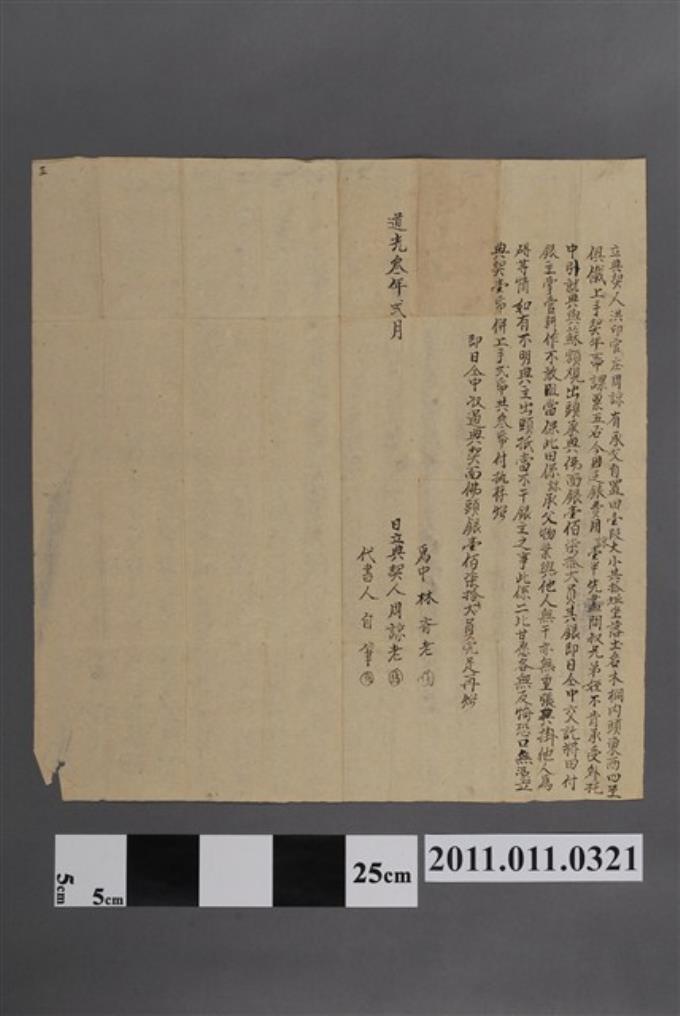 立典契人洪印官庄周諒有承父自置田壹段大小共拾坵坐落土名木柵內頭東西四至
俱儎上手契年帶課粟五石今因乏銀費用諒壹半先盡問叔兄弟姪不肯承受外托
中引就典與蘇額觀出頭承典佛面銀壹佰柒拾大員其銀即日仝中交訖將田付
銀主掌管耕作不敢阻當保此田係諒承父物業與他人無干亦無重張典掛他人為
碍等情如有不明典主出頭抵當不干銀主之事此係二比甘愿各無反悔恐口無憑立
典契壹帋併上手弍帋共叁帋付執存炤
即日仝中收過典契面佛頭銀壹佰柒拾大員完足再炤
道光叁年弍月
為中林 老
日立典契人周諒老
代書人自筆
五
2011.011.0321
5cm
5cm
25cm